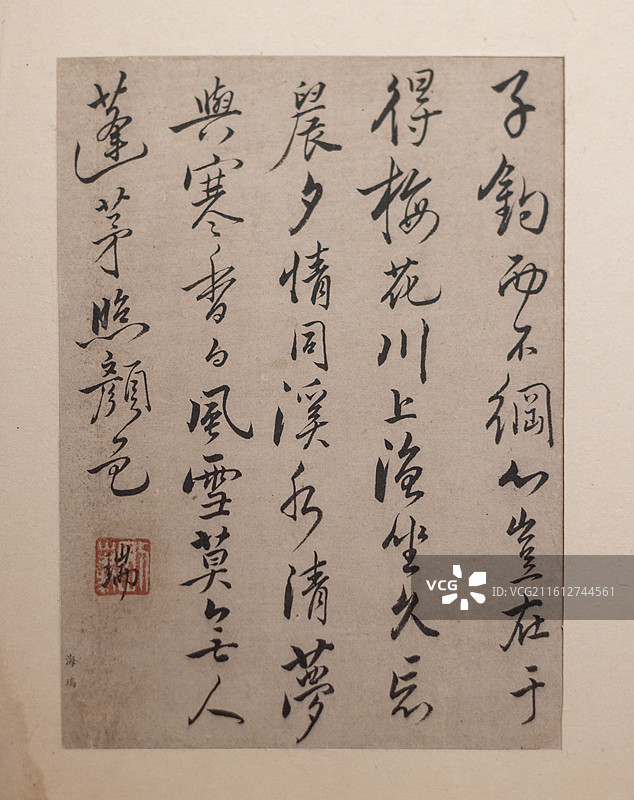 子釣而不綱心豈在于
得梅花川上漁坐久忘
晨夕情同溪水清夢
與寒香白風雪莫無人
蓬茅照顏色
瑞
海瑞
VCG
ID: VCG211612744561